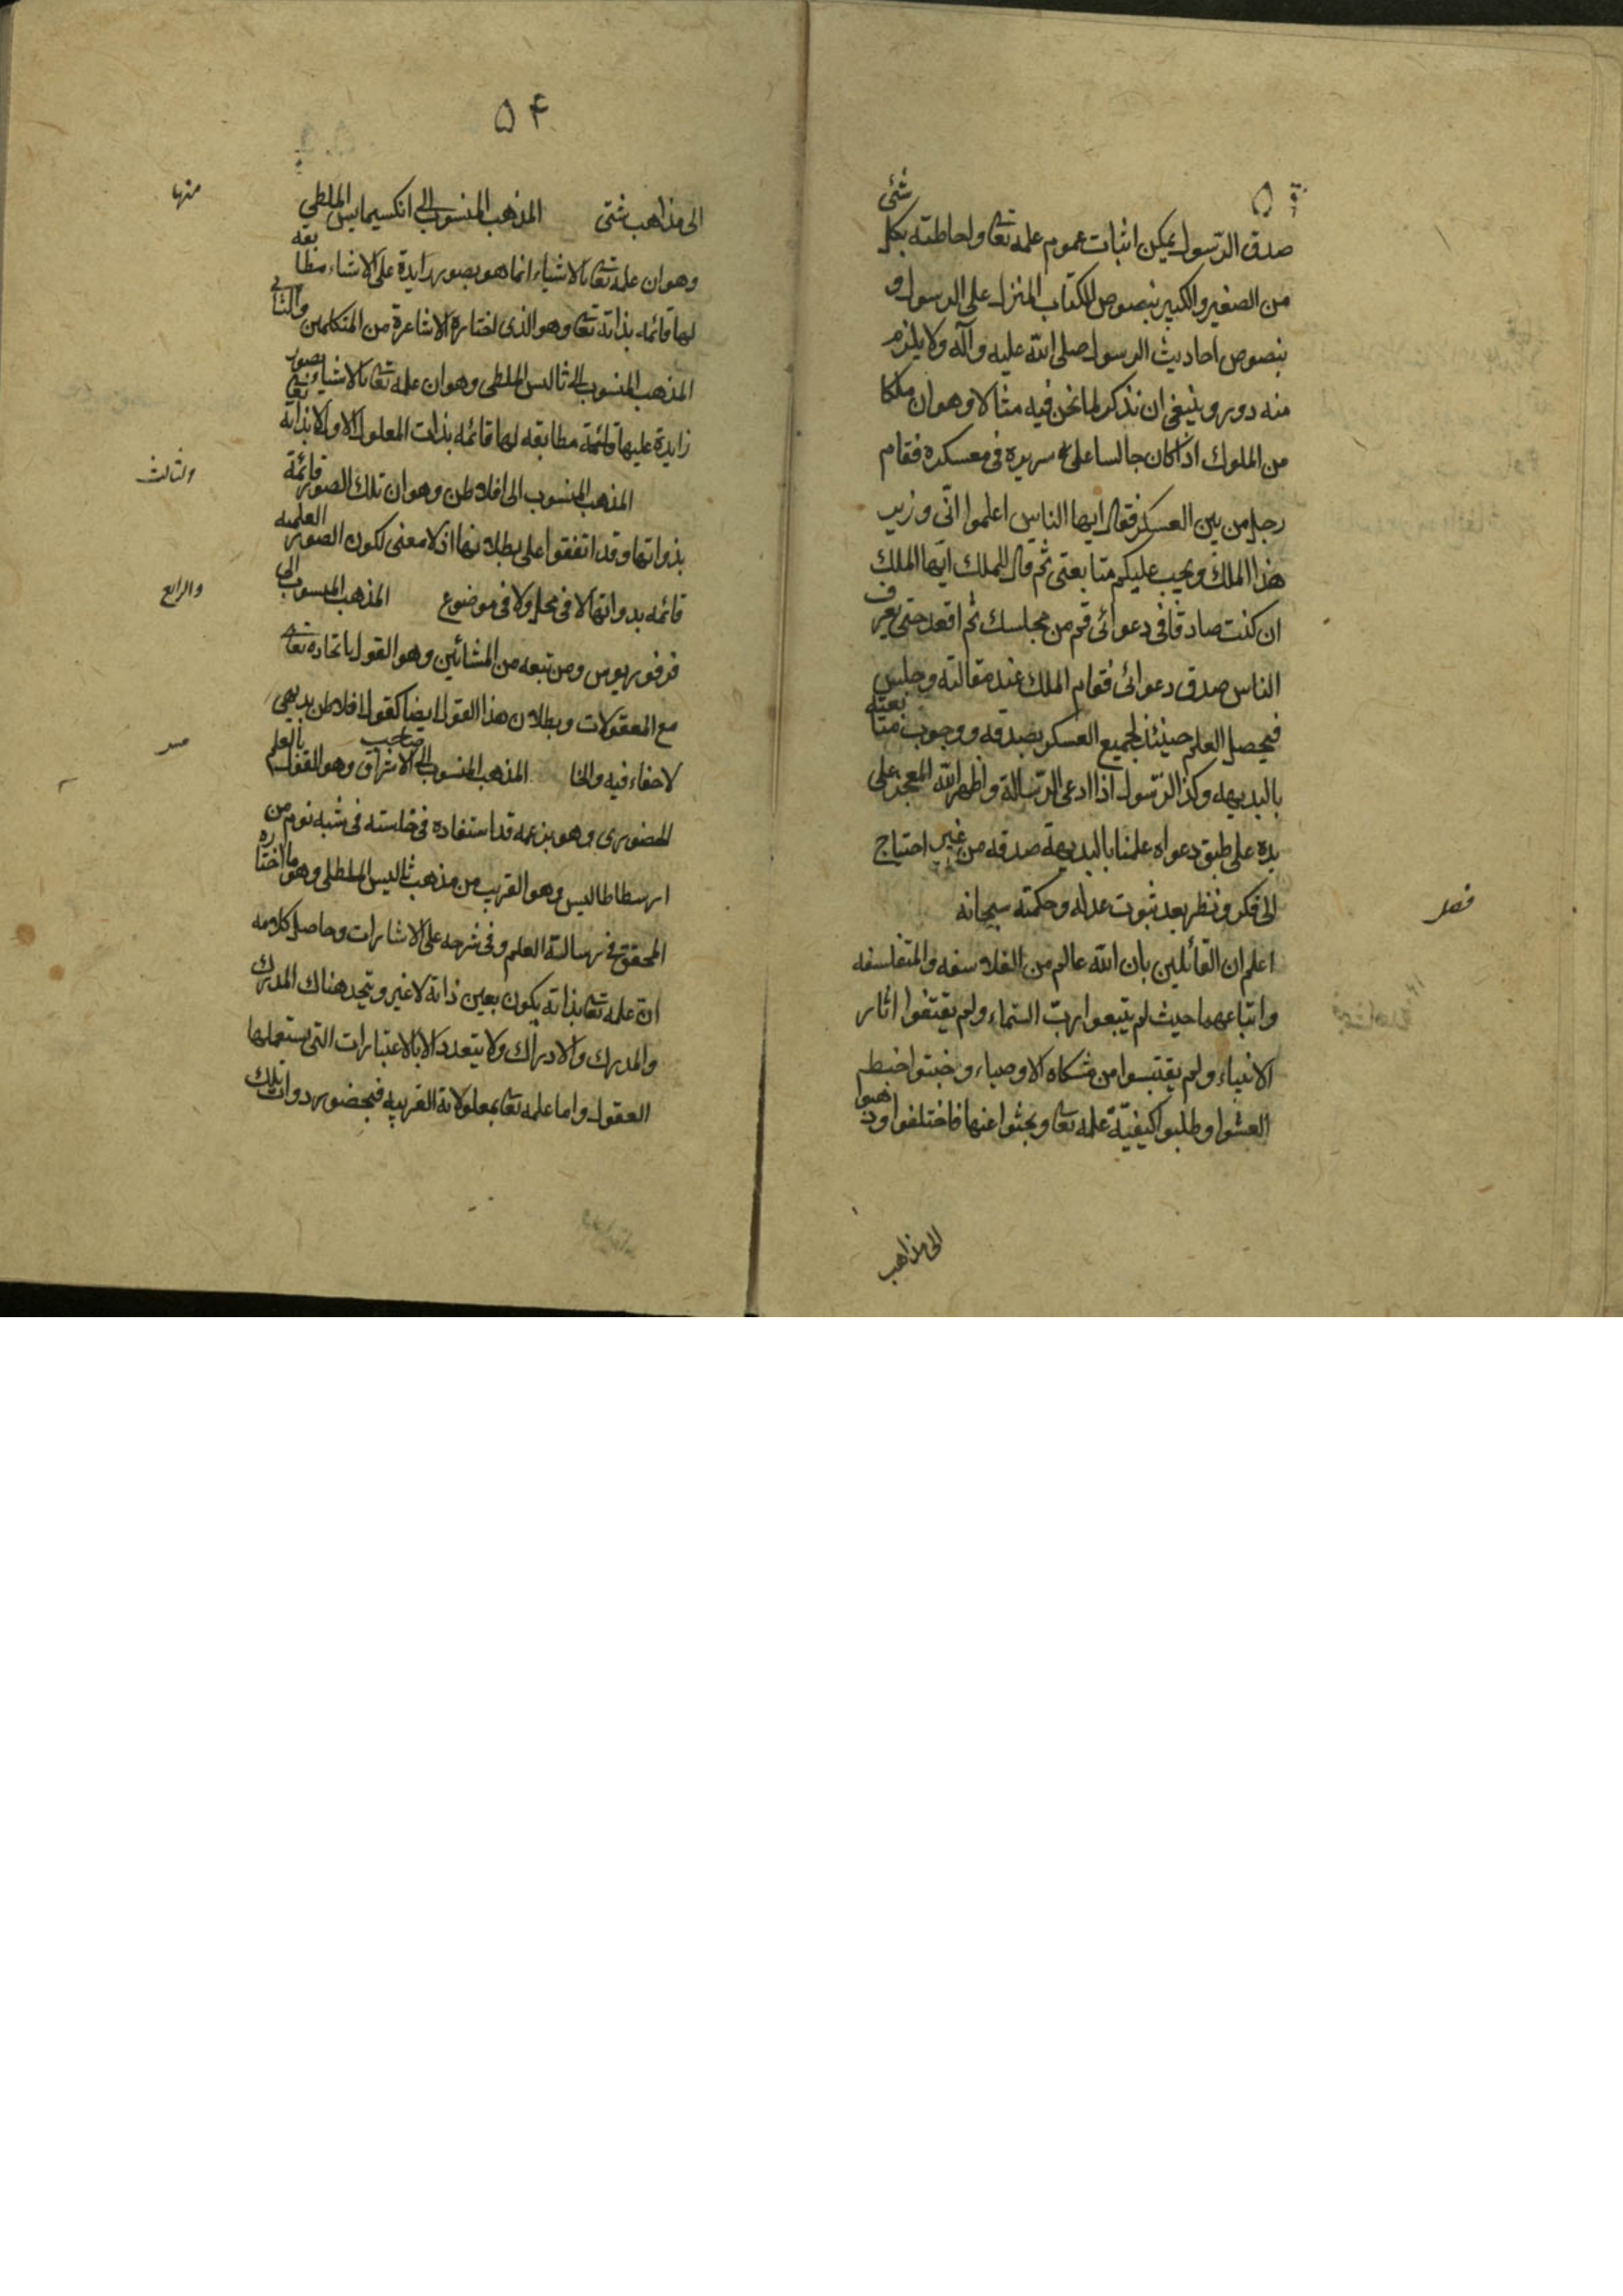 صدق الرسول يمكن اثبات عموم علمه تعا واحاطته بكل شئ
من الصغير والكبير بنصوص الكتاب المنزل على الرسول و
بنصوص احاديث الرسول صلى الله عليه وآله ولا يلزم
منه دور وينبغى ان نذكر لما نحن فيه مثالا وهو ان ملكا
من الملوك اذا كان جالسا على سريره فى معسكره فقام
رجل من بين العسكر فقال ايها الناس اعلموا انّى وزير
هذا الملك ويجب عليكم متابعتى ثم قال للملك ايّها الملك
ان كنت صادقا فى دعوائى قم من مجلسك ثم اقعد حتى يعرف
الناس صدق دعوائى فقام الملك عند مقالته وجلس
فيحصل العلم حينئذ لجميع العسكر بصدقه ووجوب متابعته
بالبديهه وكذا الرّسول اذا ادعى الرّسالة واظهر الله المعجز على
يده على طبق دعواه علمنا بالبديهة صدقه من غير احتياج
الى فكر ونظر بعد ثبوت عدله وحكمته سبحانه
فصل
اعلم ان القائلين بان الله عالم من الفلاسفه والمتفلسفه
واتباعهما حيث لم يتبعوا ربّ السّماء ولم يقتفوا اثار
الانبياء ولم يقتبسوا من مشكاه الاوصياء وخبتوا خبط
العشوا وطلبوا كيفيّة علمه تعا وبحثوا عنها فاختلفوا وذهبوا
الى مذاهب
۵۴
الى مذاهب شتى المذهب المنسوب الى انكسيمايس الملطى
منها
وهو ان علمه تعا بالاشياء انما هو بصور زايدة على الاشياء مطابقه
لها قائمه بذاته تعا وهو الذى اختاره الاشاعرة من المتكلمين والثانى
المذهب المنسوب الى ثاليس الملطى وهو ان علمه تعا بالاشياء بصور
زايدة عليها قائمة مطابقه لها قائمه بذات المعلول الاول لا بذاته تعا
والثالث
المذهب المنسوب الى افلاطن وهو ان تلك الصور قائمة
بذواتها وقد اتفقوا على بطلانها اذ لا معنى لكون الصور العلميه
والرابع
قائمه بذواتها لا فى محل ولا فى موضوع المذهب المنسوب الى
فرفوريوس ومن تبعه من المشائين وهو القول باتحاده تعا
مع المعقولات وبطلان هذا القول ايضا كقول افلاطن بديهى
لا خفاء فيه والخا المذهب المنسوب الى صاحب الاشراق وهو القول بالعلم
مس
الحضورى وهو بزعمه قد استفاده فى خلسته فى شبه نوم من
ارسطاطاليس وهو القريب من مذهب ثاليس الملطلى وهو ما اختاره
المحقق فى رسالة العلم وفى شرحه على الاشارات وحاصل كلامه
ان علمه تعا بذاته يكون بعين ذاته لا غير ويتحد هناك المدرك
والمدرك والادراك ولا يتعدد الا بالاعتبارات التى يستعملها
العقول واما علمه تعا بمعلولاته القريبه فبحضور ذوات تلك